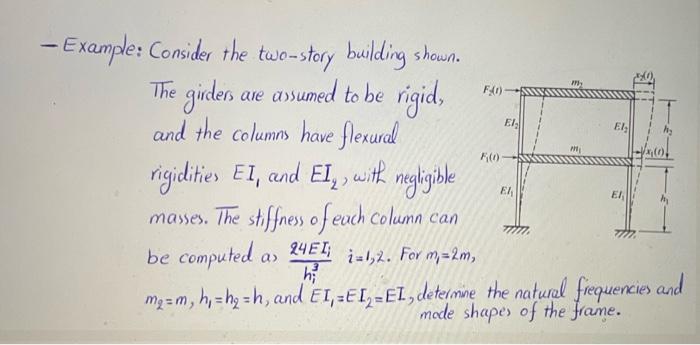 - Example: Consider the two-story building shown.
The girders are assumed to be rigid,
and the columns have flexural
rigidities EI₁ and EI₂, with negligible
masses. The stiffness of each column can
be computed as 24EIᵢ/hᵢ³ i=1,2. For m₁=2m,
m₂=m, h₁=h₂=h, and EI₁=EI₂=EI, determine the natural frequencies and
mode shapes of the frame.
x₂(t)
F₂(t)
m₂
EI₂
EI₂
h₂
F₁(t)
m₁
x₁(t)
EI₁
EI₁
h₁